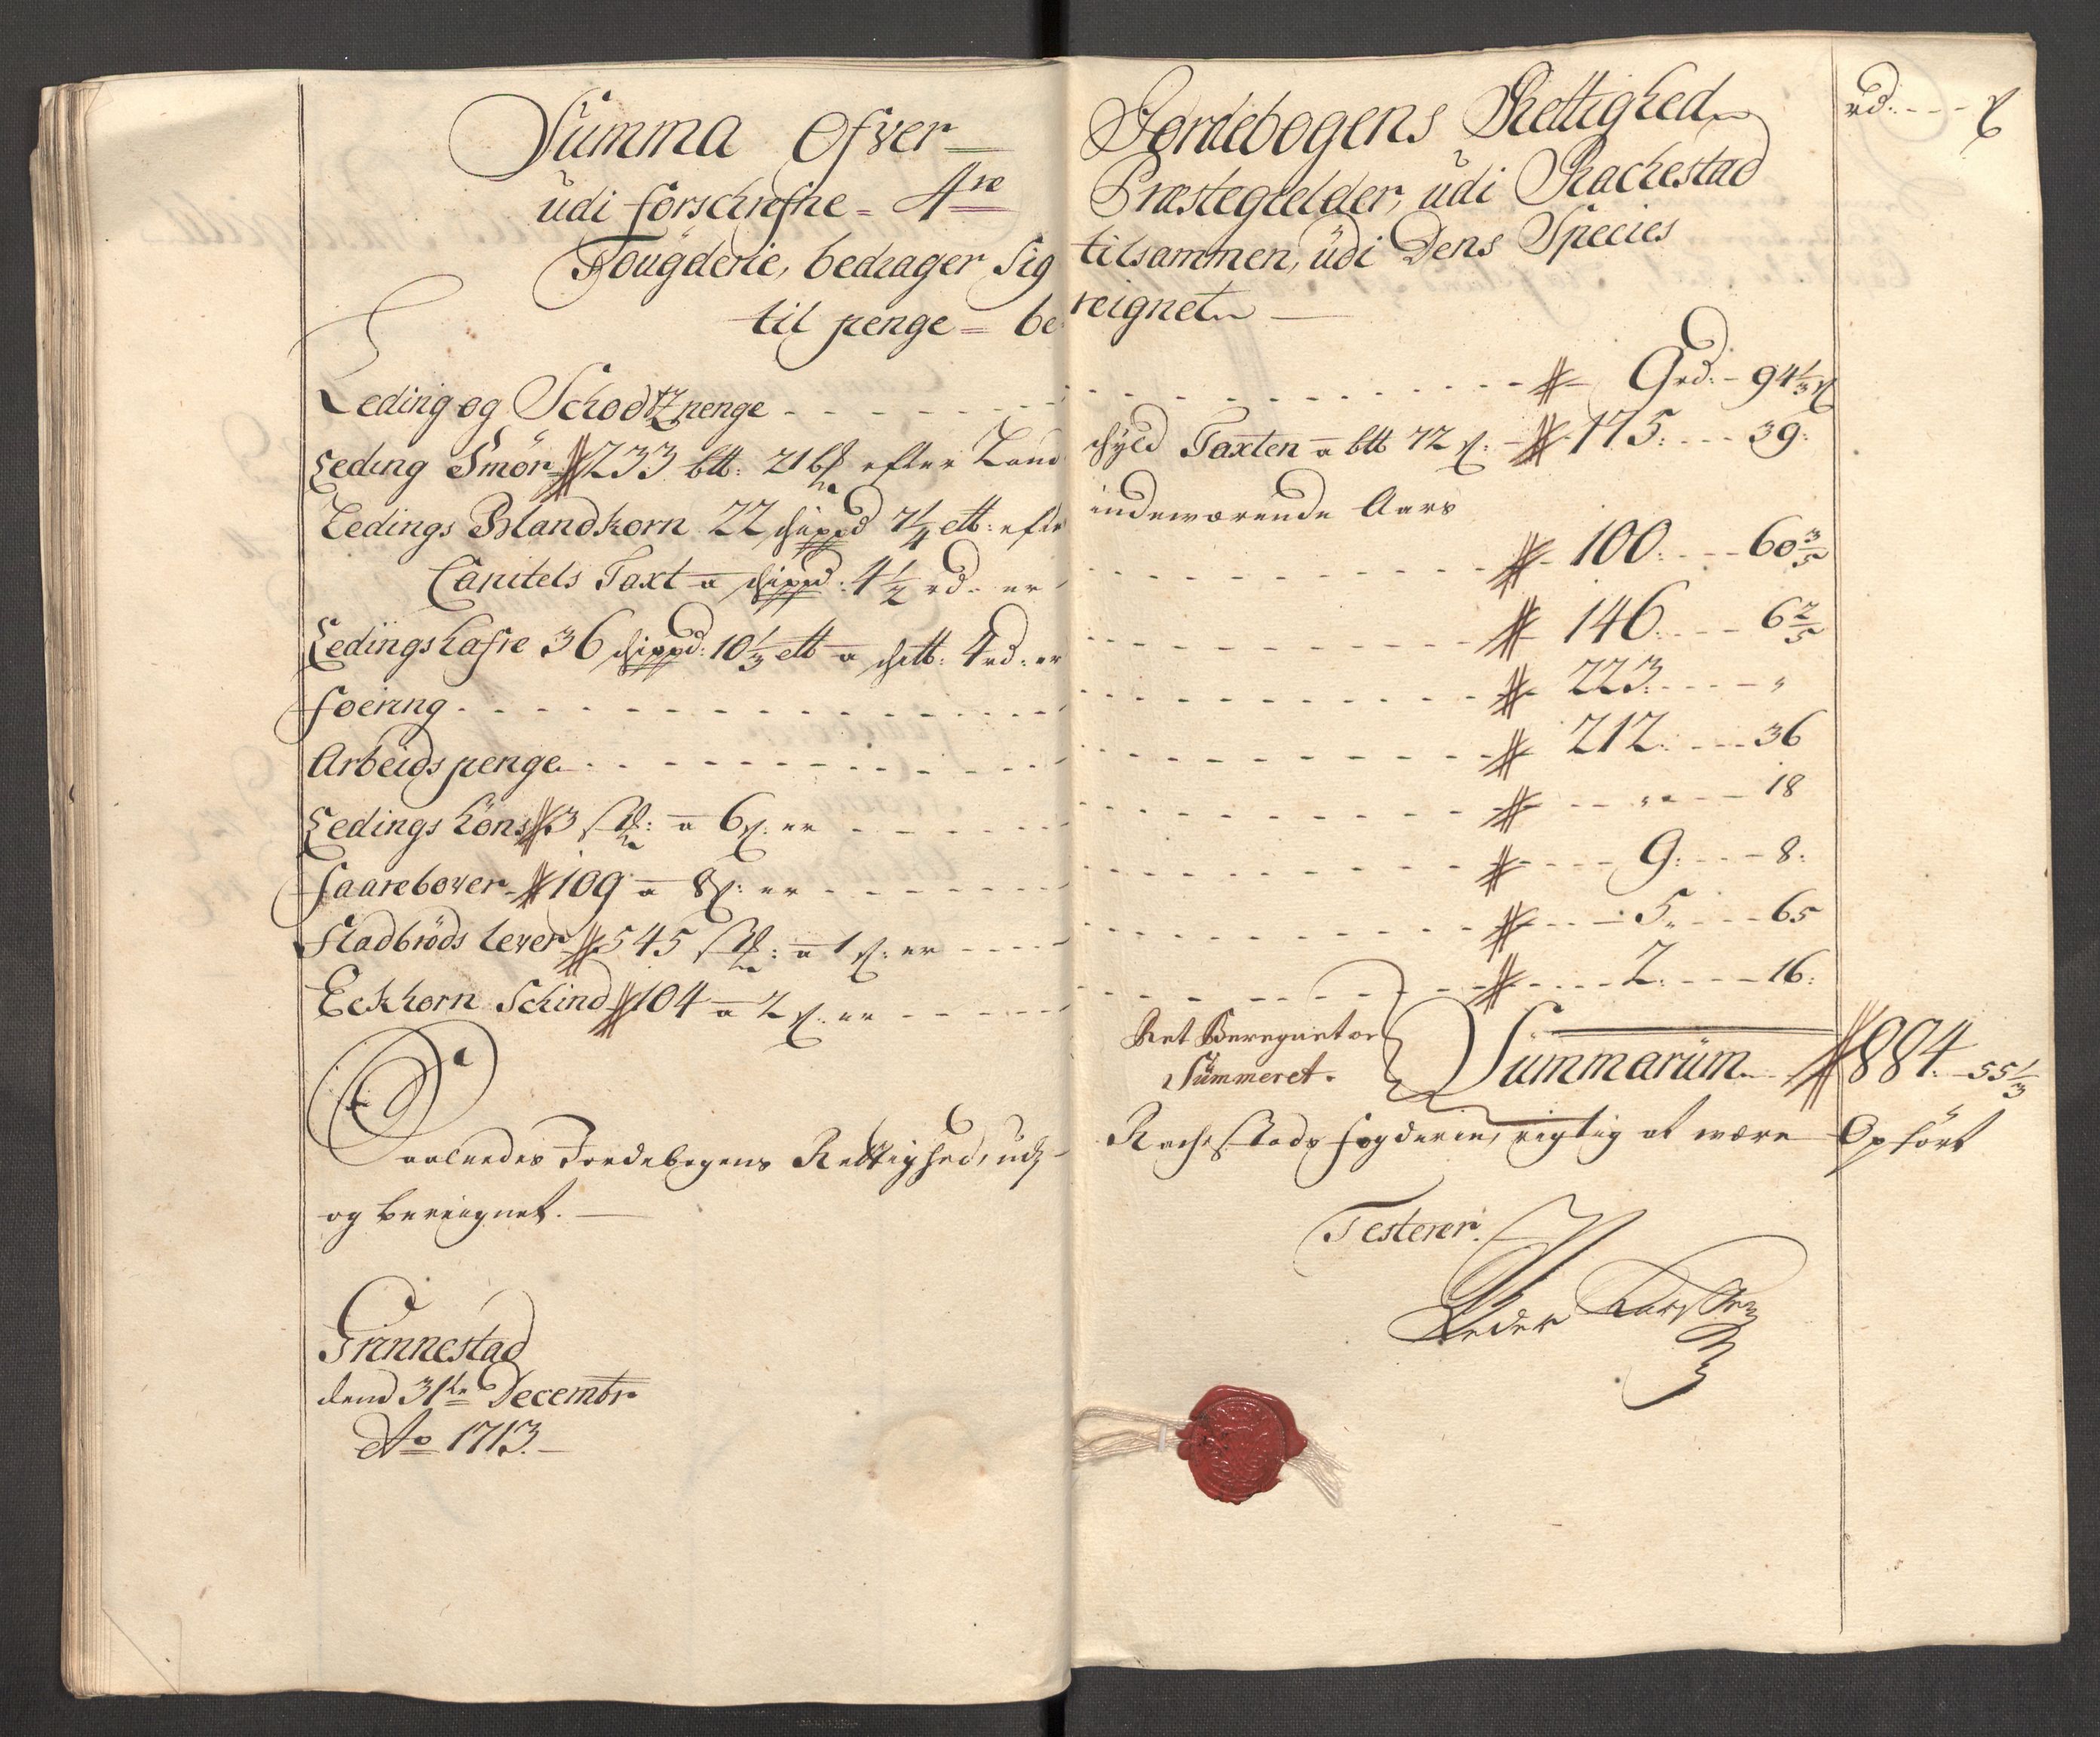 Summa Ofver Jordebogens Rettighed rd: ß
udi forschrefne 4re Præstegielder, udi Rachestad
Fougderie, bedrager Sig tilsammen, udi Dens Species
til penge bereignet
Leding og Schodtz penge # 9 rd: 94 1/3 ß
Leding Smör # 233 btt: 21 b# efter Landschyld Taxten a btt 72 ß: # 175: 39:
Ledings Blandkorn 22 schippd 7 1/4 ett: efter indeværende Aars
Capitels Taxt a schippd: 4 1/2 rd: er # 100: 60 3/5
Ledings hafre 36 schippd: 10 1/3 ett a schtt: 4 rd: er # 146: 6 2/5
foering # 223: "
Arbeids penge # 212: 36
Ledings höns # 3 stk: a 6 ß: er # " 18
faarebover # 109 a 8 ß: er # 9: 8:
fladbröds lever # 545 stk: a 1 ß: er # 5: 65
Eckhorn Schind # 104 a 2 ß: er # 2: 16:
Ret Beregnet oc
Summeret. Summarum # 884: 55 1/3
Saaledes Jordebogens Rettighed, udj Rachestads fogderie, rigtig at være Opfört
og bereignet.
Testerer
Peder Karstens
Grinnestad
dend 31te Decembr
Ao 1713